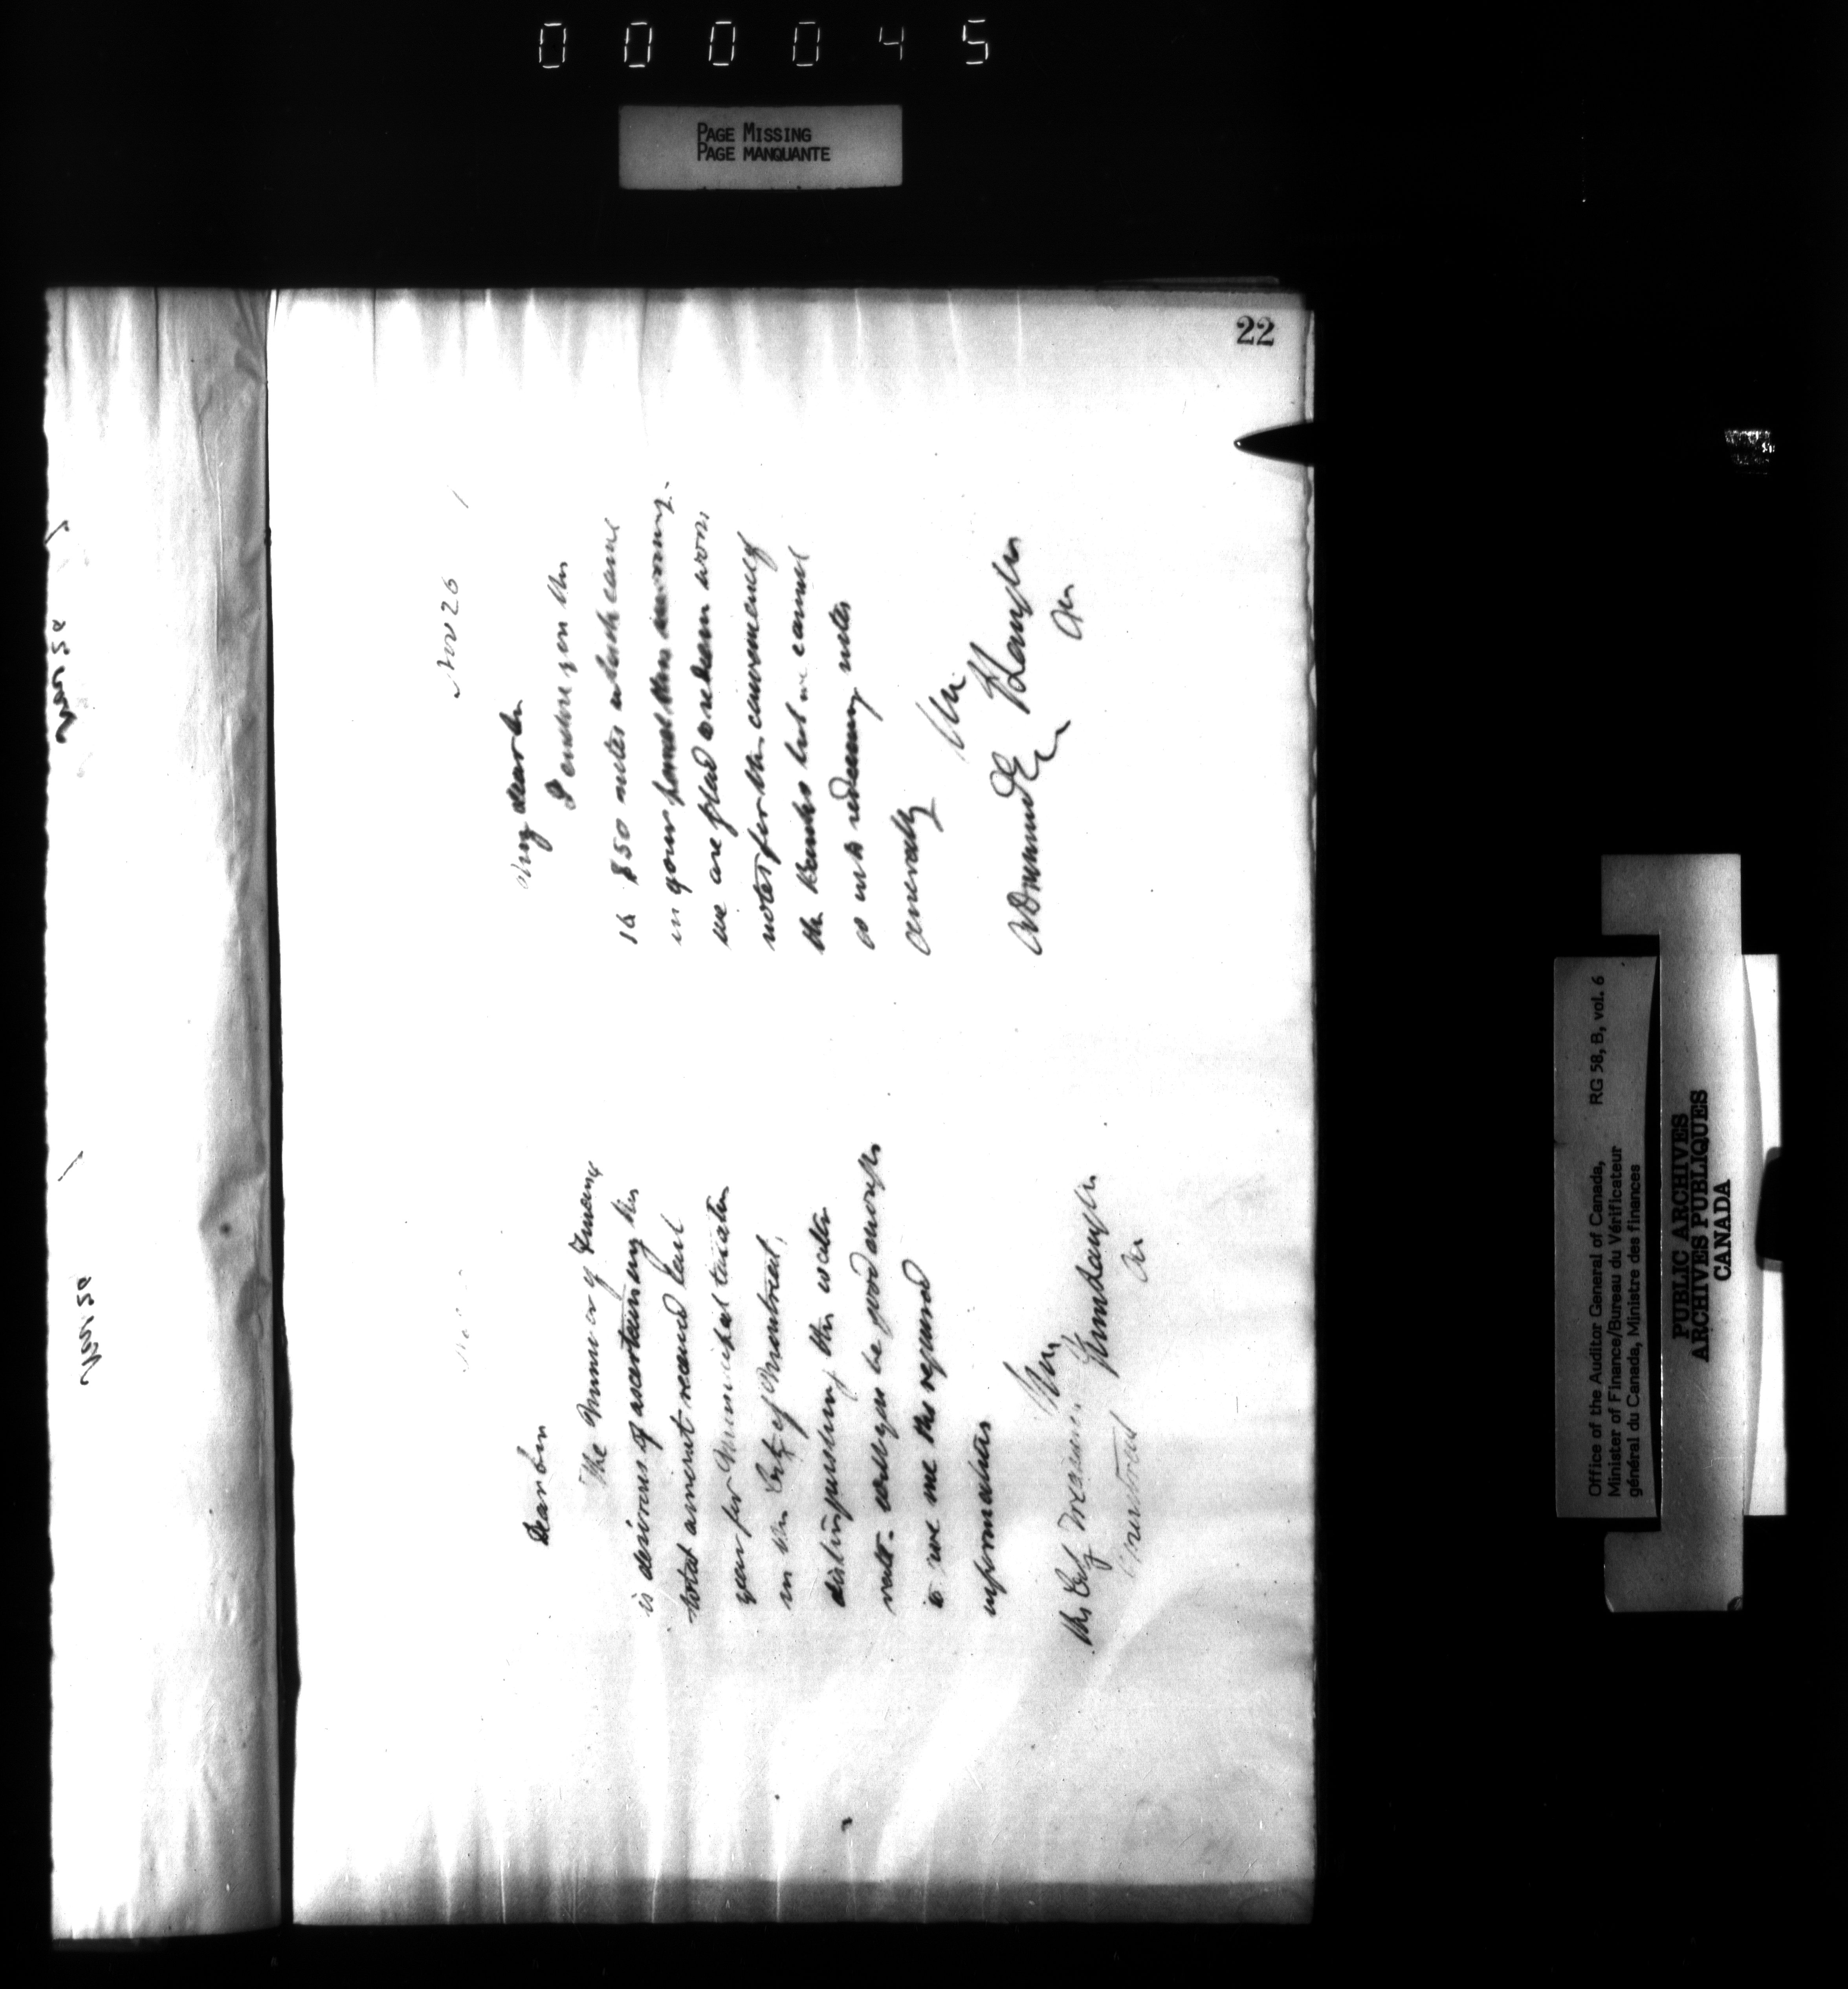 000045
PAGE MISSING
PAGE MANQUANTE
22
Dear Sir
The Minister of Finance
is desirous of ascertaining the
total amount received last
year for Municipal taxation
in the City of Montreal,
distinguishing the water
rate. Will you be good enough
to me the required
information
The City Treasurer
Montreal
Nov 26
My dear Sir
I enclose you the
16 $50 notes which came
in your parcel this morning.
We are glad to redeem worn
notes for the convenience of
the Banks but we cannot
go into redeeming notes
generally
Drummond
Office of the Auditor General of Canada,
Minister of Finance/Bureau du Vérificateur
général du Canada, Ministre des finances
RG 58, B, vol. 6
PUBLIC ARCHIVES
ARCHIVES PUBLIQUES
CANADA